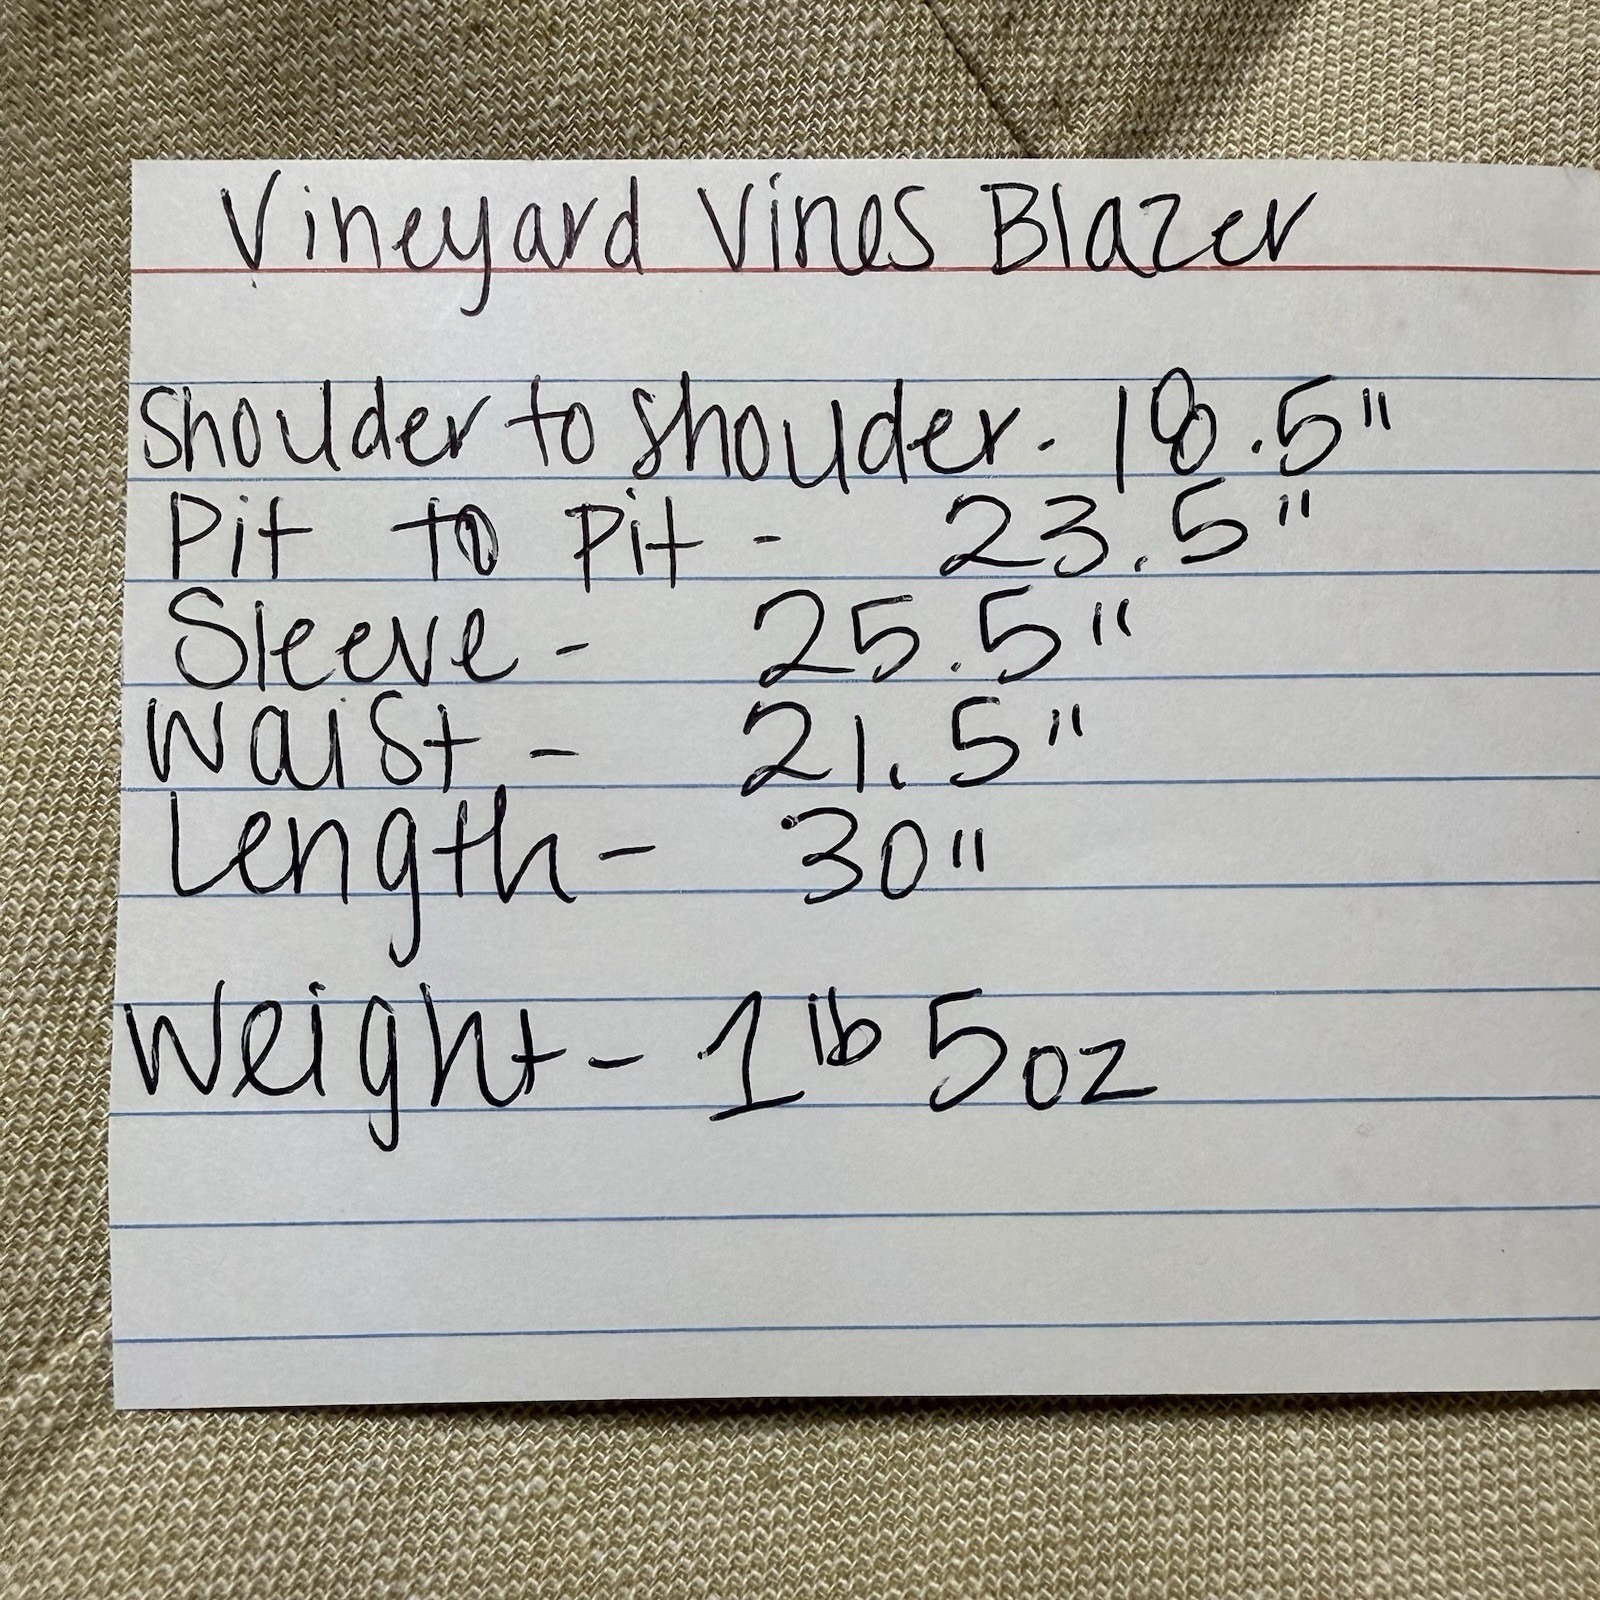 Vineyard Vines Blazer
Shoulder to Shoulder - 18.5"
Pit to Pit - 23.5"
Sleeve - 25.5"
Waist - 21.5"
Length - 30"
Weight - 1 lb 5 oz